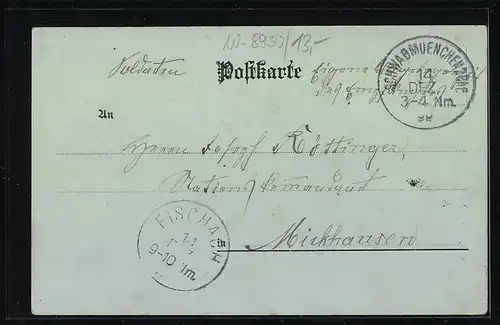 W-8930/13,-
Soldaten Postkarte Eigene Angelegenheit
des Empfängers
SCHWABMUENCHEN
14
DEZ
3-4 Nm.
99
An
Herrn Joseph Röttinger,
Stations Commandant
in Mickhausen
FISCHACH
14
9-10 Vm.